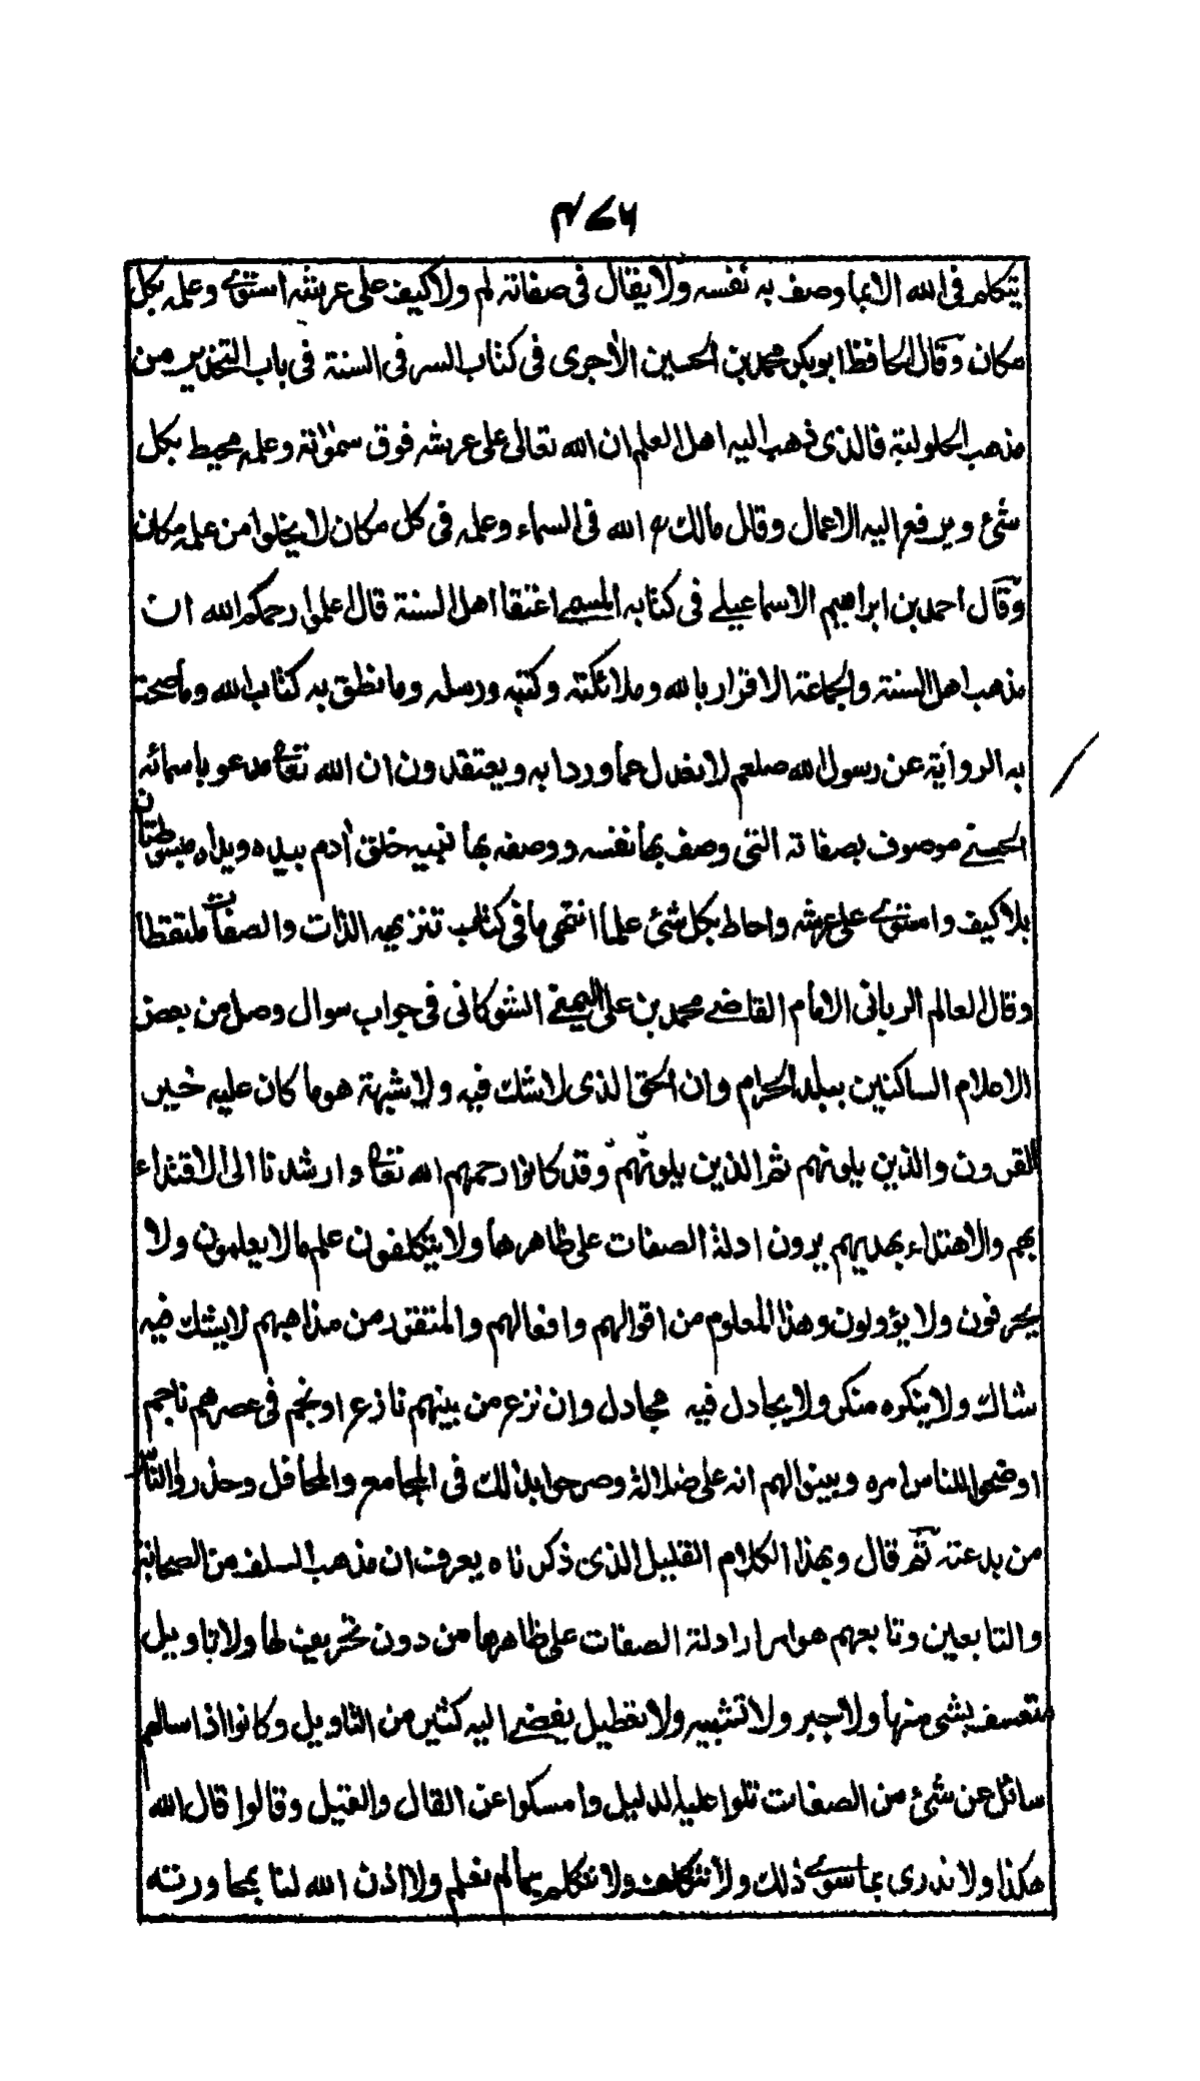 ۴۷۶
يتكلم فى الله الا بما وصف به نفسه ولا يقال فى صفاته لم ولا كيف على عرشه استوى وعلمه بكل
مكان وقال الحافظ ابو بكر محمد بن الحسين الآجرى فى كتاب السر فى السنة فى باب التحذير من
مذهب الحلولية فالذى ذهب اليه اهل العلم ان الله تعالى على عرشه فوق سموٰاته وعلمه محيط بكل
شئ ويرفع اليه الاعمال وقال مالك رح الله فى السماء وعلمه فى كل مكان لا يخلوا من علمه مكان
وقال احمد بن ابراهيم الاسماعيلے فى كتابه المسمے اعتقا اهل السنة قال اعلموا رحمكم الله ان
مذهب اهل السنة والجماعة الاقرار بالله وملائكته وكتبه ورسله وما نطق به كتاب الله وما صحت
به الرواية عن رسول الله صلعم لا نعدل عما وردا به ويعتقدون ان الله تعالى مدعو باسمائه
الحسنے موصوف بصفاته التى وصف بها نفسه ووصفه بها نبيه خلق اٰدم بيده ويداه مبسوطتان
بلا كيف واستوى على عرشه واحاط بكل شئ علما انتهى ما فى كتاب تنزيه الذات والصفات ملتقطا
وقال العالم الربانى الامام القاضے محمد بن على اليمنے الشوكانى فى جواب سوال وصل من بعض
الاعلام الساكنين ببلد الحرام وان الحق الذى لا شك فيه ولا شبهة هو ما كان عليه خير
القرون والذين يلونهم ثم الذين يلونهم وقد كانوا رحمهم الله تعالى وارشدنا الى الاقتداء
بهم والاهتداء بهديهم يرون ادلة الصفات على ظاهرها ولا يتكلفون علم ما لا يعلمون ولا
يحرفون ولا يؤولون وهذا المعلوم من اقوالهم وافعالهم والمتقرر من مذاهبهم لا يشك فيه
شاك ولا ينكره منكر ولا يجادل فيه مجادل وان نزع من بينهم نازع او نجم فى عصرهم ناجم
اوضحوا للناس امره وبينوا لهم انه على ضلالة وصرحوا بذلك فى المجامع والمحافل وحذروا الناس
من بدعته ثم قال وبهذا الكلام القليل الذى ذكرناه يعرف ان مذهب السلف من الصحابة
والتابعين وتابعهم هو امرار ادلة الصفات على ظاهرها من دون تحريف لها ولا تاويل
متعسف بشى منها ولا جبر ولا تشبيه ولا تعطيل يفضے اليه كثير من التاويل وكانوا اذا سالهم
سائل عن شئ من الصفات تلوا عليه الدليل وامسكوا عن القال والقيل وقالوا قال الله
هكذا ولا ندرى بما سوى ذلك ولا نتكلف ولا نتكلم بما لم نعلم ولا اذن الله لنا بمجاورته